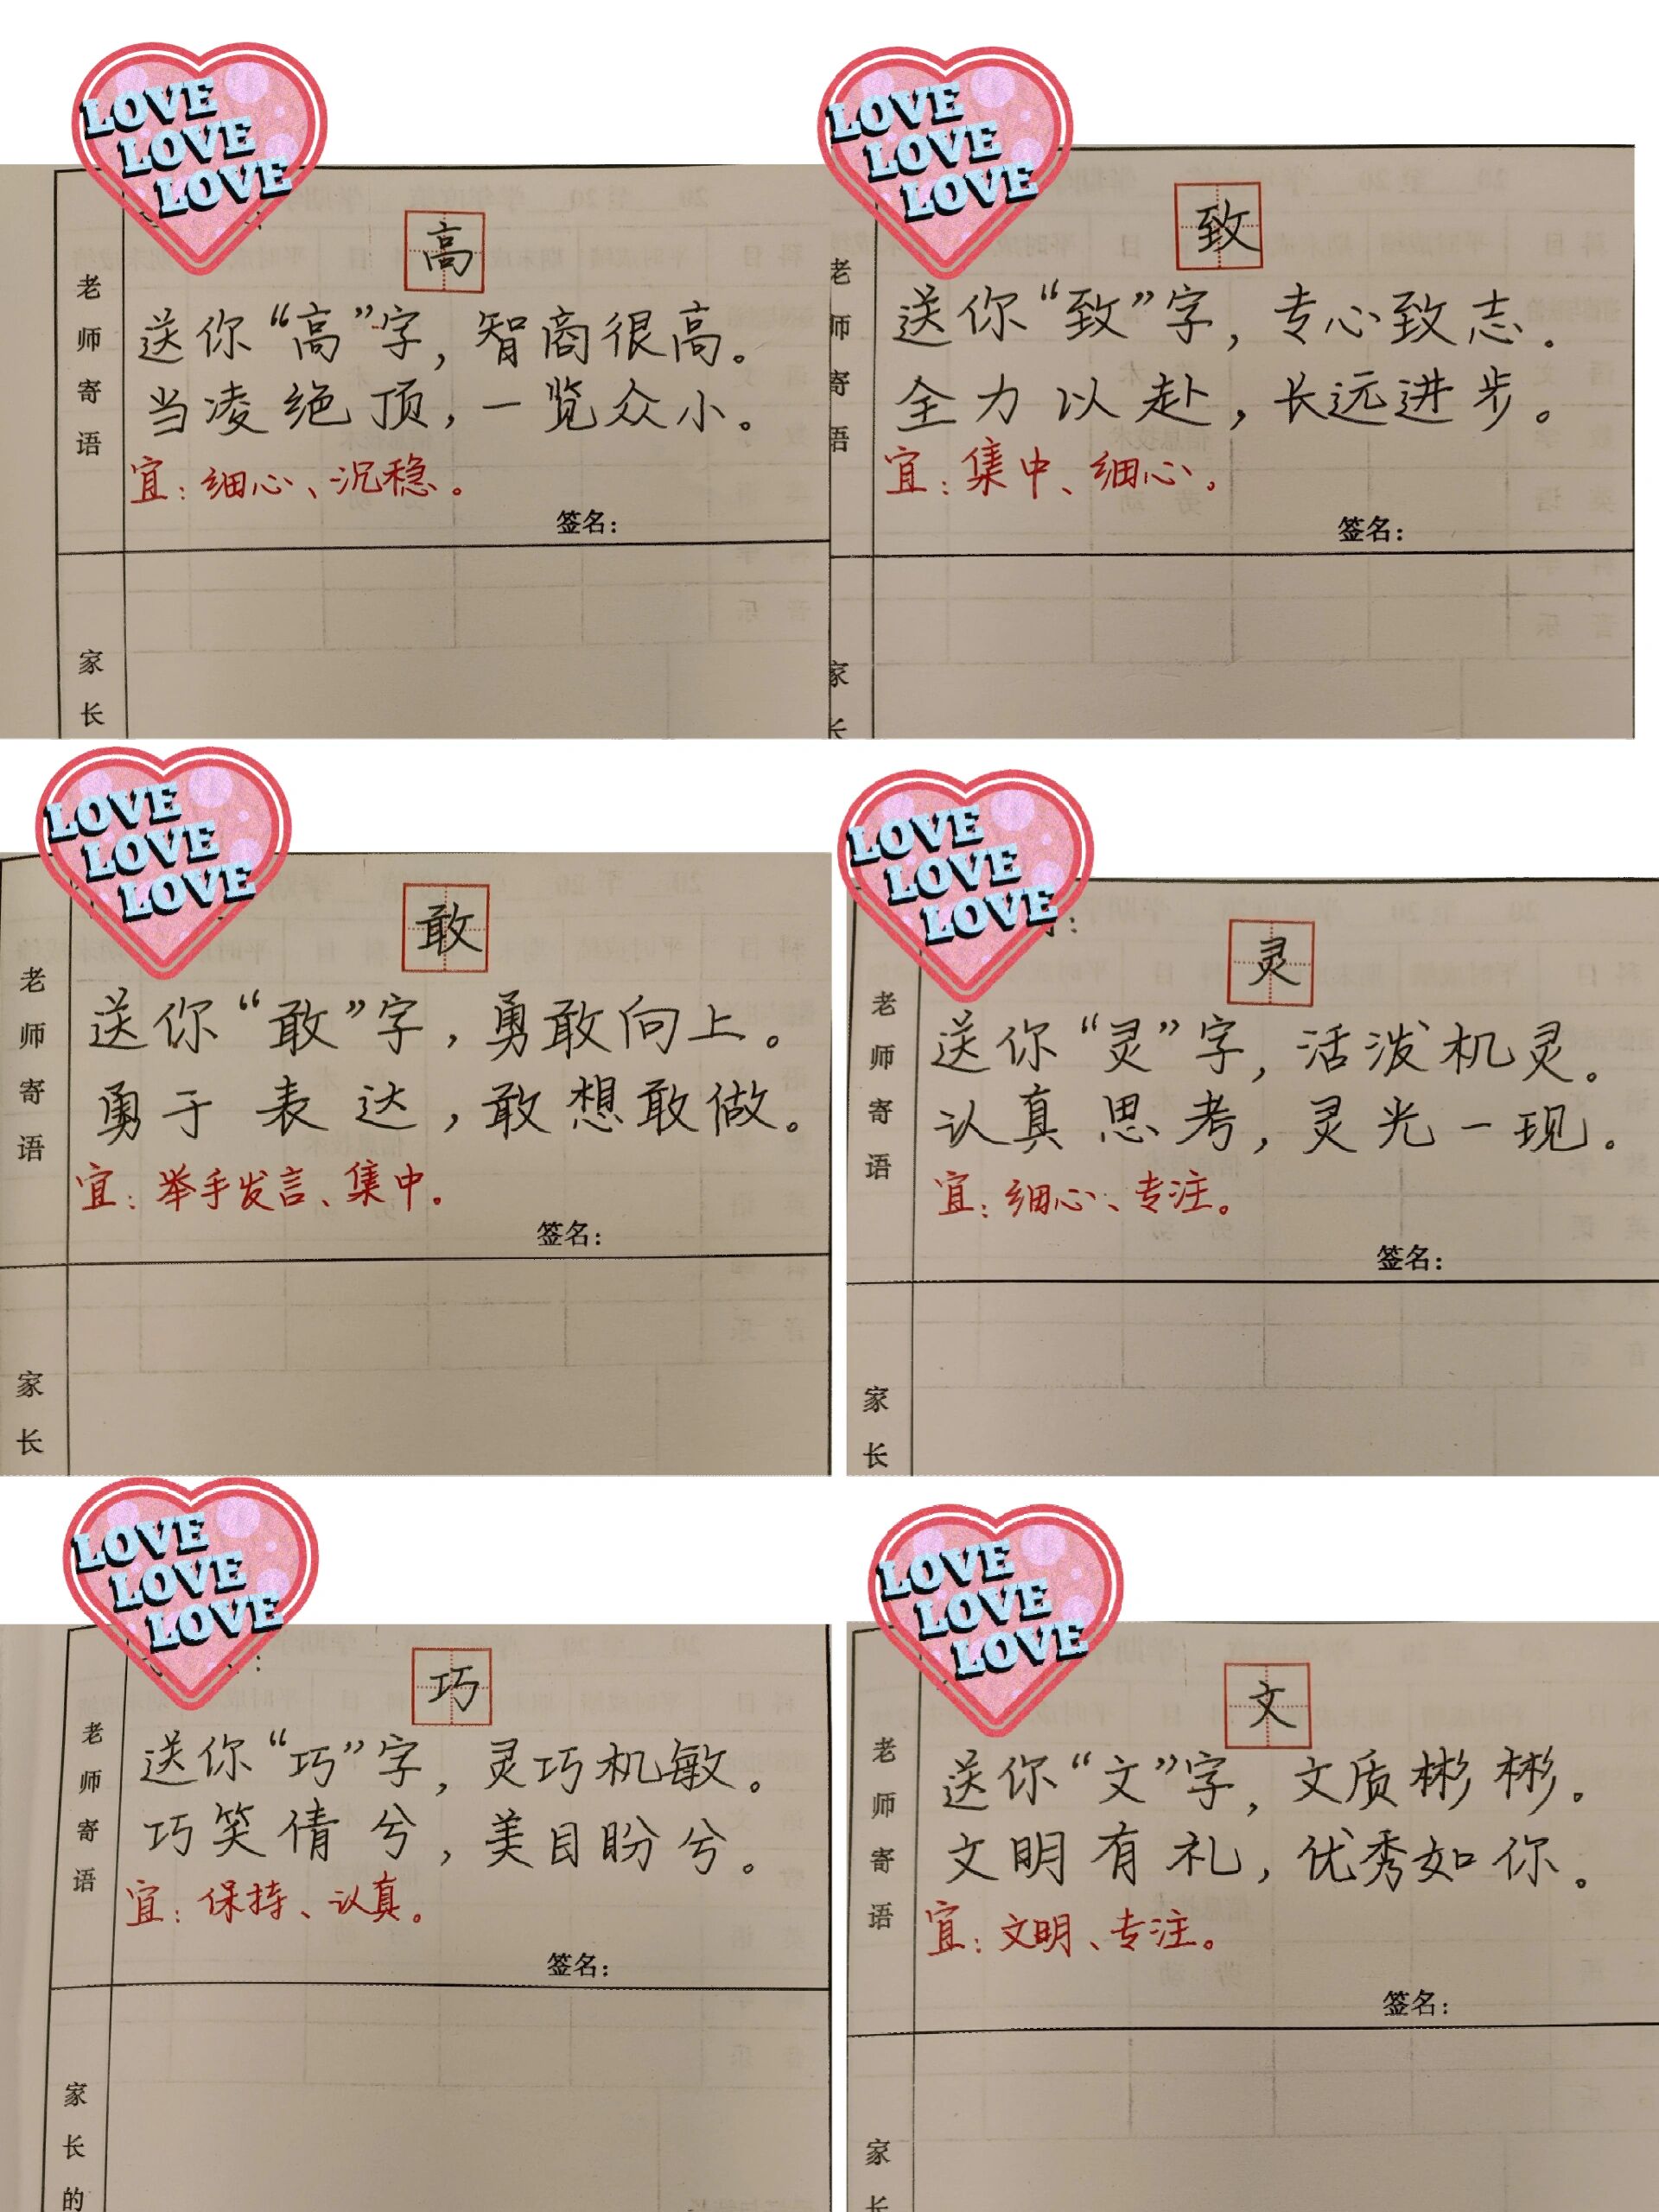 LOVE
LOVE
LOVE
高
老师寄语
送你“高”字，智商很高。
当凌绝顶，一览众小。
宜：细心、沉稳。
签名：
家长
LOVE
LOVE
LOVE
致
老师寄语
送你“致”字，专心致志。
全力以赴，长远进步。
宜：集中、细心。
签名：
家长
LOVE
LOVE
LOVE
敢
老师寄语
送你“敢”字，勇敢向上。
勇于表达，敢想敢做。
宜：举手发言、集中。
签名：
家长
LOVE
LOVE
LOVE
灵
老师寄语
送你“灵”字，活泼机灵。
认真思考，灵光一现。
宜：细心、专注。
签名：
家长
LOVE
LOVE
LOVE
巧
老师寄语
送你“巧”字，灵巧机敏。
巧笑倩兮，美目盼兮。
宜：保持、认真。
签名：
家长的
LOVE
LOVE
LOVE
文
老师寄语
送你“文”字，文质彬彬。
文明有礼，优秀如你。
宜：文明、专注。
签名：
家长